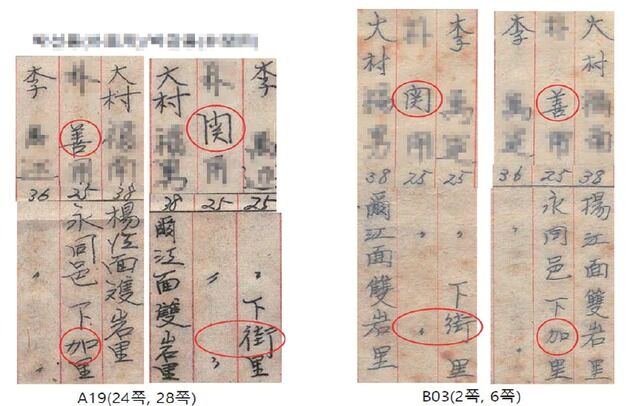 大村 38 楊江面雙岩里
善 25 永同邑 下加里
李 36 〃
李 25 〃 下街里
関 25 〃 〃
大村 38 爾江面雙岩里
A19(24쪽, 28쪽)
李 25 〃 下街里
関 25 〃 〃
大村 38 爾江面雙岩里
大村 38 楊江面雙岩里
善 25 永同邑 下加里
李 36 〃
B03(2쪽, 6쪽)